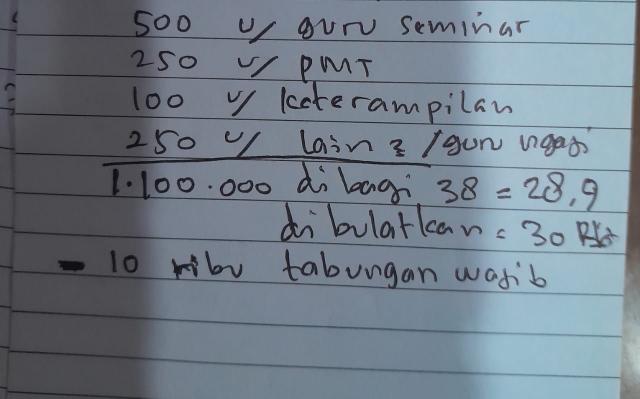 500 u/ guru seminar
250 u/ PMT
100 u/ keterampilan
250 u/ lain2 /guru ngaji
1.100.000 di bagi 38 = 28,9
di bulatkan = 30
- 10 ribu tabungan wajib